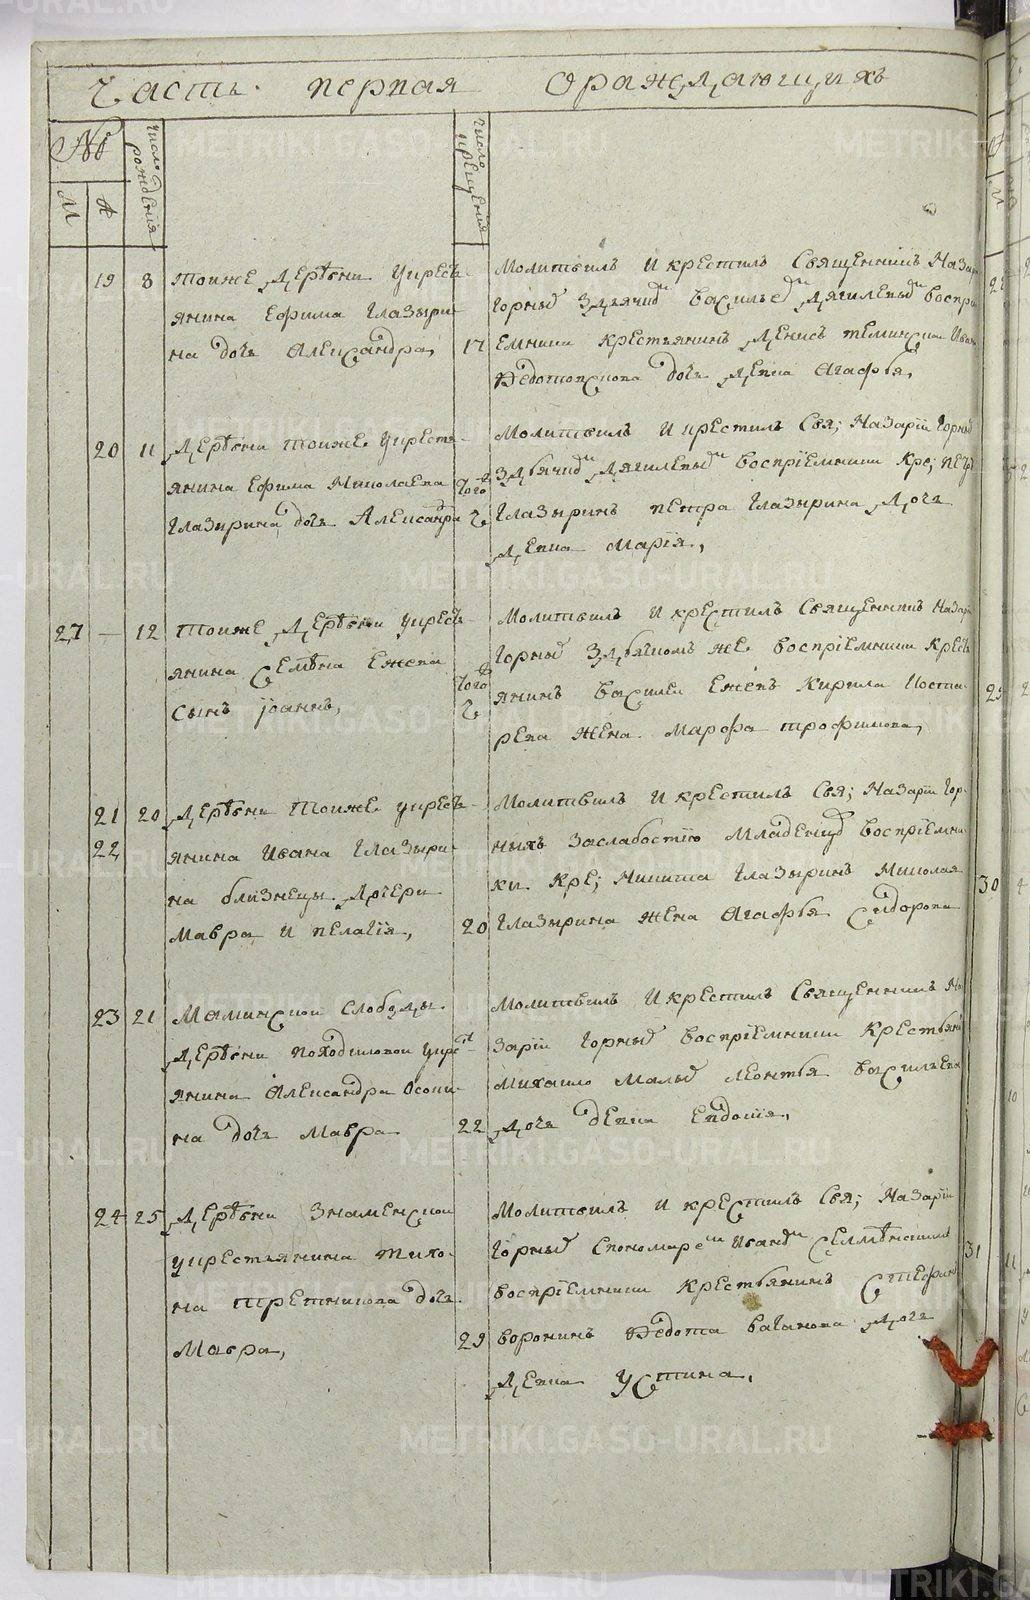 Часть первая ораждающихъ
№
число рождения
число крещения
М
Ж
19 8 тоиже дерѣвни укресть-
янина Ефима Глазыри-
на дочь Александра, 17
Молитвилъ и крестилъ Священникъ Наза
Горныѣ здьячид. Василье Дягилевы воспри
емники крестьянинъ Денисъ Темник Ива
Федото дочь Девка Агафья,
20 11 Дерѣвни тоиже укресть-
янина Ефима Николаева
Глазырина дочь Александра
того ж
Молитвилъ и крестилъ Свя; Назарiи Горны
здьячид Дягилевы воспрiемники Кре; Петръ
Глазыринъ Петра Глазырина дочь
девка Марiя,
27 — 12 тоиже дерѣвни укресть-
янина Семѣна Ежева
сынъ iоаннъ,
того ж
Молитвилъ и крестилъ Священникъ Назарi
Горныѣ здьячкомъ же воспрiемники Кресть
янинъ Василеи Ежевъ Кирила Коста-
рева жена Марфа Трофимова,
21 20 Дерѣвни тоиже укресть-
22 янина Ивана Глазыри-
на близнецы дочери
Мавра и Пелагiя, 20
Молитвилъ и крестилъ Свя; Назарiи Гор-
ныхъ заслабостiю младенцо воспрiемни-
ки Кре; Никита Глазыринъ Николая
Глазырина жена Агафья Сидорова
23 21 Маминскои слободы
дерѣвни Походиловои укрест-
янина Александра Осоки-
на дочь Мавра 22
Молитвилъ и крестилъ Священникъ На
зарiи Горныѣ воспрiемники Крестьяни
Михаило Малыѣ Леонтья Васильева
дочь девка Евдокiя,
24 25 Дерѣвни Знаменскои
укрестьянина Тихо-
на Третникова дочь
Мавра, 29
Молитвилъ и крестилъ Свя; Назарiи
Горныѣ Спономаре Иван Селмѣнскимъ
воспрiемники Крестьянинъ Стефанъ
Воронинъ Федота Баганова дочь
девка Устина,
METRIKI.GASO-URAL.RU